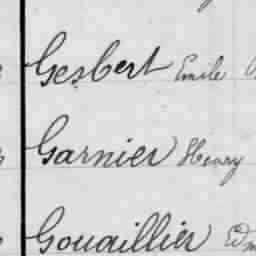 Gesbert Emile
Garnier Henry
Gouaillier